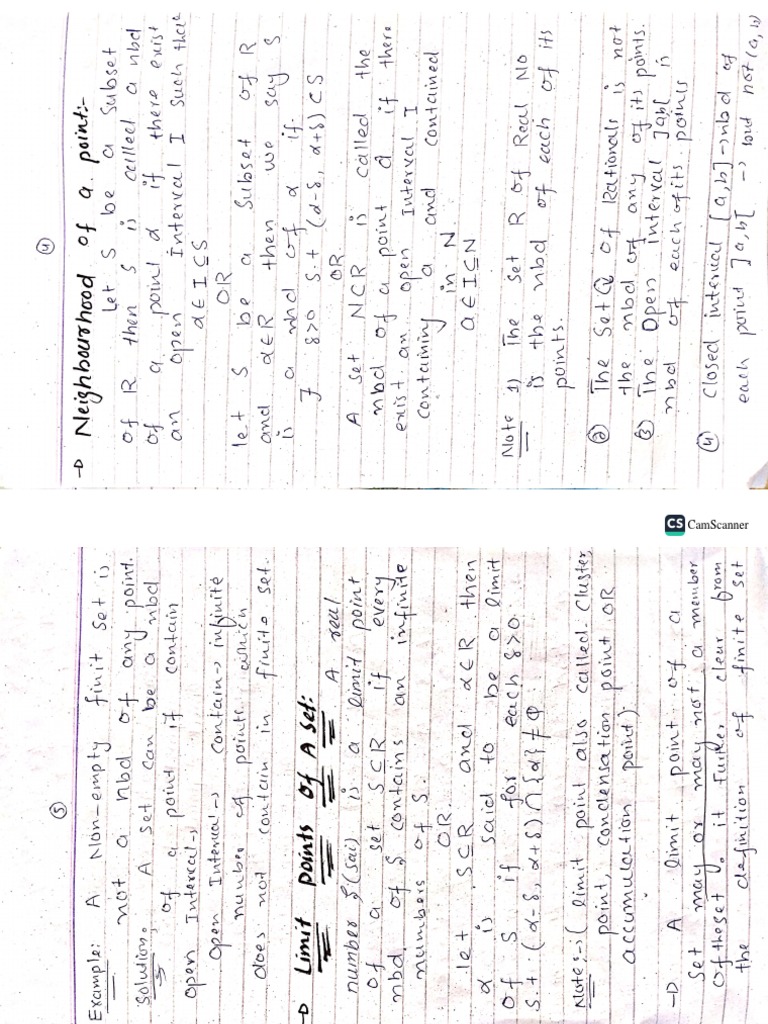 ④
→ Neighbourhood of a point:-
Let S be a subset
of R then S is called a nbd
of a point α if there exist
an open Interval I such that
α ∈ I ⊆ S
OR
let S be a Subset of R
and α∈R then we say S
is a nbd of α if
∃ δ>0 s.t (α-δ, α+δ) ⊂ S
OR
A set N⊂R is called the
nbd of a point a if there
exist an open Interval I
containing a and contained
in N
a ∈ I ⊆ N
Note 1) The set R of Real No
is the nbd of each of its
points.
② The Set Q of Rationals is not
the nbd of any of its points.
③ The Open Interval ]a,b[ is
nbd of each of its points
④ Closed interval [a,b] → nbd of
each point ]a,b[ → but not (a, b)
CS CamScanner
⑤
Example: A Non-empty finit set is
not a nbd of any point.
Solution. A set can be a nbd
of a point if contain
open Interval,
open Interval → contain → infinite
number of points which
does not contain in finite set.
→ Limit points of A set:
A real
number ξ(sai) is a limit point
of a set S⊆R if every
nbd, of ξ contains an infinite
numbers of S.
OR.
let S⊆R and α∈R then
α is said to be a limit
of S if for each δ>0
s.t. (α-δ, α+δ)∩{α}≠Φ
Note:→ ( limit point also called Cluster
point, condensation point OR
accumulation point).
→ A limit point of a
set may or may not a member
of the set. it further clear from
the definition of finite set